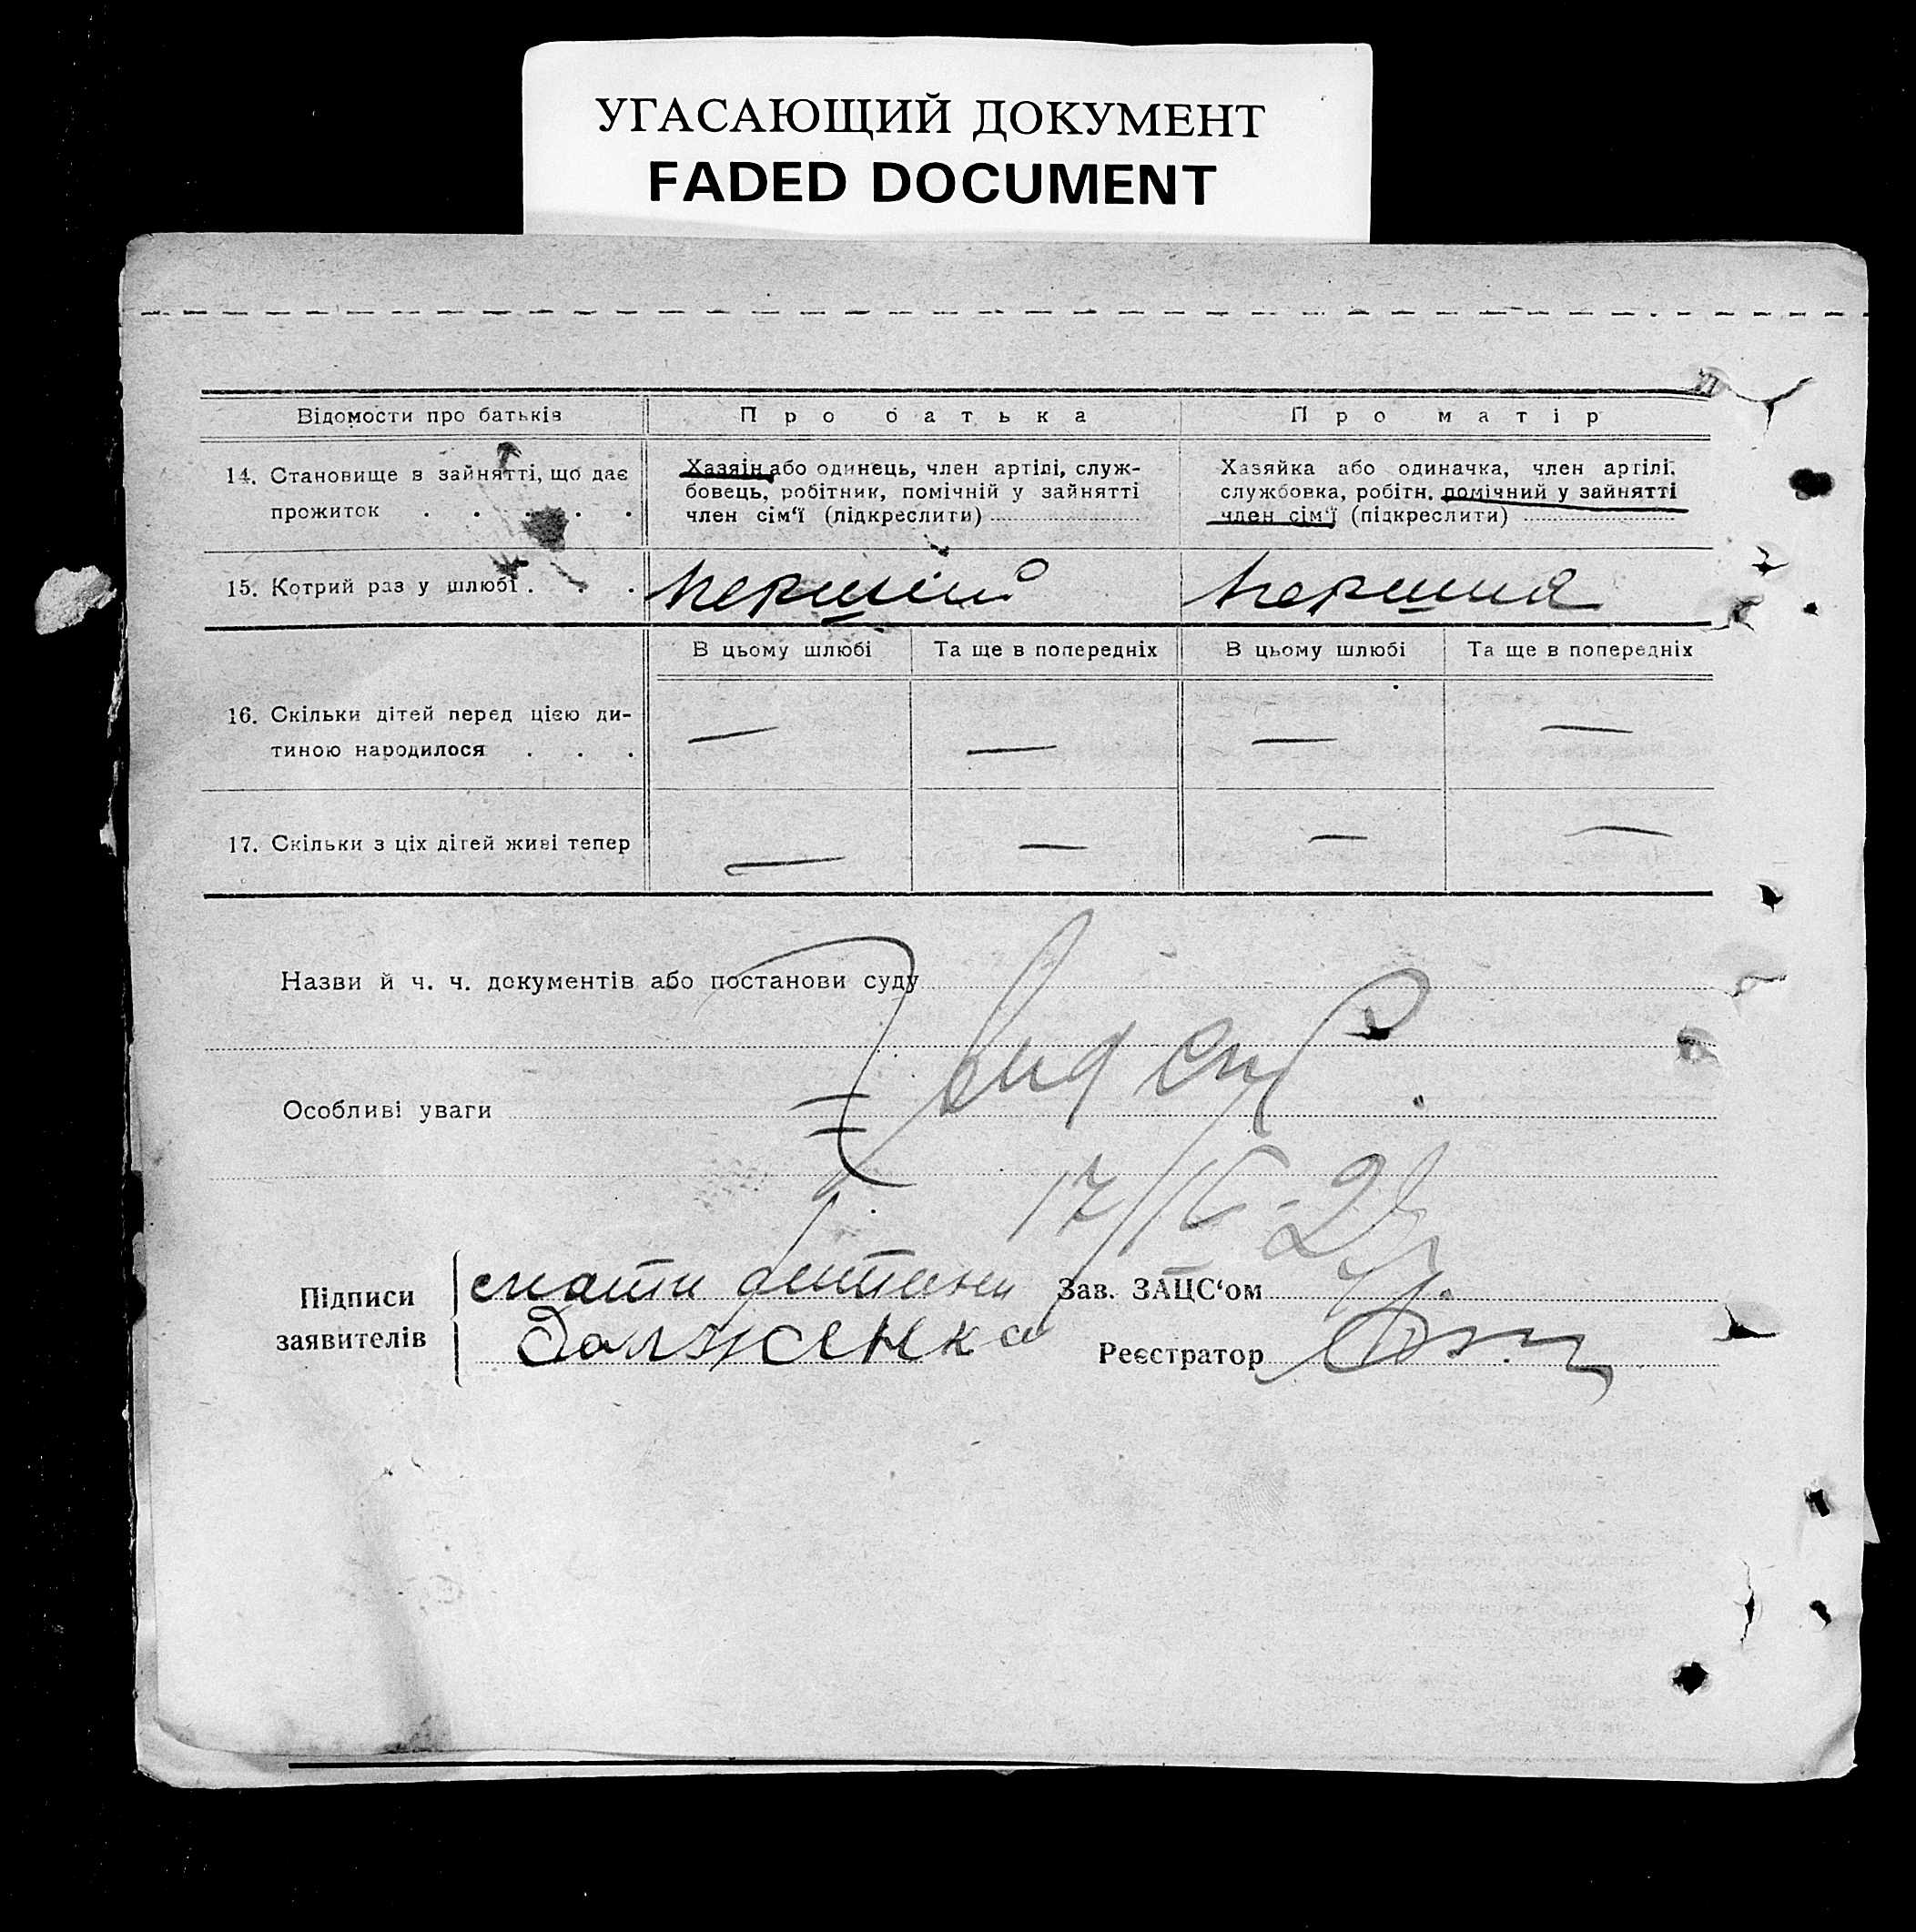 УГАСАЮЩИЙ ДОКУМЕНТ
FADED DOCUMENT
Відомости про батьків
Про батька
Про матір
14. Становище в зайнятті, що дає
прожиток . . . . .
Хазяін або одинець, член артілі, служ-
бовець, робітник, помічній у зайнятті
член сім‘ї (підкреслити)
Хазяйка або одиначка, член артілі,
службовка, робітн. помічний у зайнятті
член сім‘ї (підкреслити)
15. Котрий раз у шлюбі . . .
перший
першия
В цьому шлюбі
Та ще в попередніх
В цьому шлюбі
Та ще в попередніх
16. Скільки дітей перед цією ди-
тиною народилося . . .
— — — —
17. Скільки з ціх дітей живі тепер
— — — —
Назви й ч. ч. документів або постанови суду
Особливі уваги
Підписи
заявителів
мати дитини
Долженка
Зав. ЗАЦС‘ом
Реєстратор